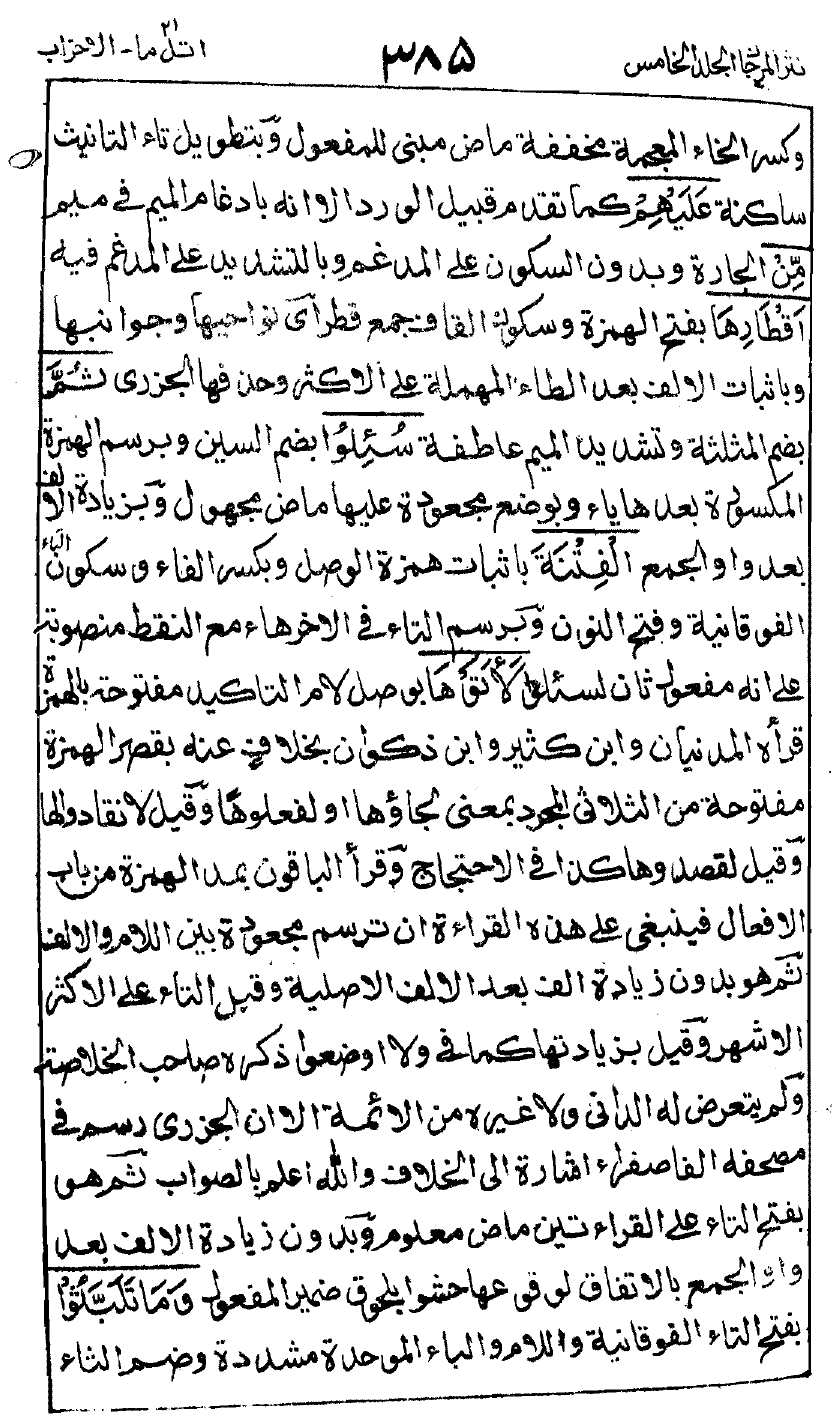 نثر المرجان الجلد الخامس ٣٨٥ اتل ما - الاحزاب ٢١
وكسر الخاء المعجمة مخففة ماض مبنى للمفعول وبتطويل تاء التانيث
ساكنة عَلَيْهِمْ كما تقدم قبيل الورد الا انه بادغام الميم فى ميم
مِّنْ الجارة وبدون السكون على المدغم وبالتشديد على المدغم فيه
اَقْطَارِهَا بفتح الهمزة وسكون القاف جمع قطر أى نواحيها وجوانبها
وباثبات الالف بعد الطاء المهملة على الاكثر وحذفها الجزرى ثُمَّ
بضم المثلثة وتشديد الميم عاطفة سُئِلُوا بضم السين وبرسم الهمزة
المكسورة بعدها ياء وبوضع مجعودة عليها ماض مجهول وبزيادة الالف
بعد واو الجمع الْفِتْنَةَ باثبات همزة الوصل وبكسر الفاء وسكون التاء
الفوقانية وفتح النون وبرسم التاء فى الاخر هاء مع النقط منصوبة
على انه مفعول ثان لسئلوا لَأَتَوْهَا بوصل لام التاكيد مفتوحة بالهمزة
قرأه المدنيان وابن كثير وابن ذكوان بخلاف عنه بقصر الهمزة
مفتوحة من الثلاثى المجرد بمعنى لجاؤها او لفعلوها وقيل لانقادوا لها
وقيل لقصدوها كذا فى الاحتجاج وقرأ الباقون بمد الهمزة من باب
الافعال فينبغى على هذه القراءة ان ترسم مجعودة بين اللام والالف
ثم هو بدون زيادة الف بعد الالف الاصلية وقبل التاء على الاكثر
الاشهر وقيل بزيادتها كما فى ولا اوضعوا ذكره صاحب الخلاصة
ولم يتعرض له الدانى ولا غيره من الائمة الا ان الجزرى رسم فى
مصحفه الفا صفراء اشارة الى الخلاف والله اعلم بالصواب ثم هو
بفتح التاء على القراءتين ماض معلوم وبدون زيادة الالف بعد
واو الجمع بالاتفاق لوقوعها حشوا بلحوق ضمير المفعول وَمَا تَلَبَّثُوا
بفتح التاء الفوقانية واللام والباء الموحدة مشددة وضم الثاء